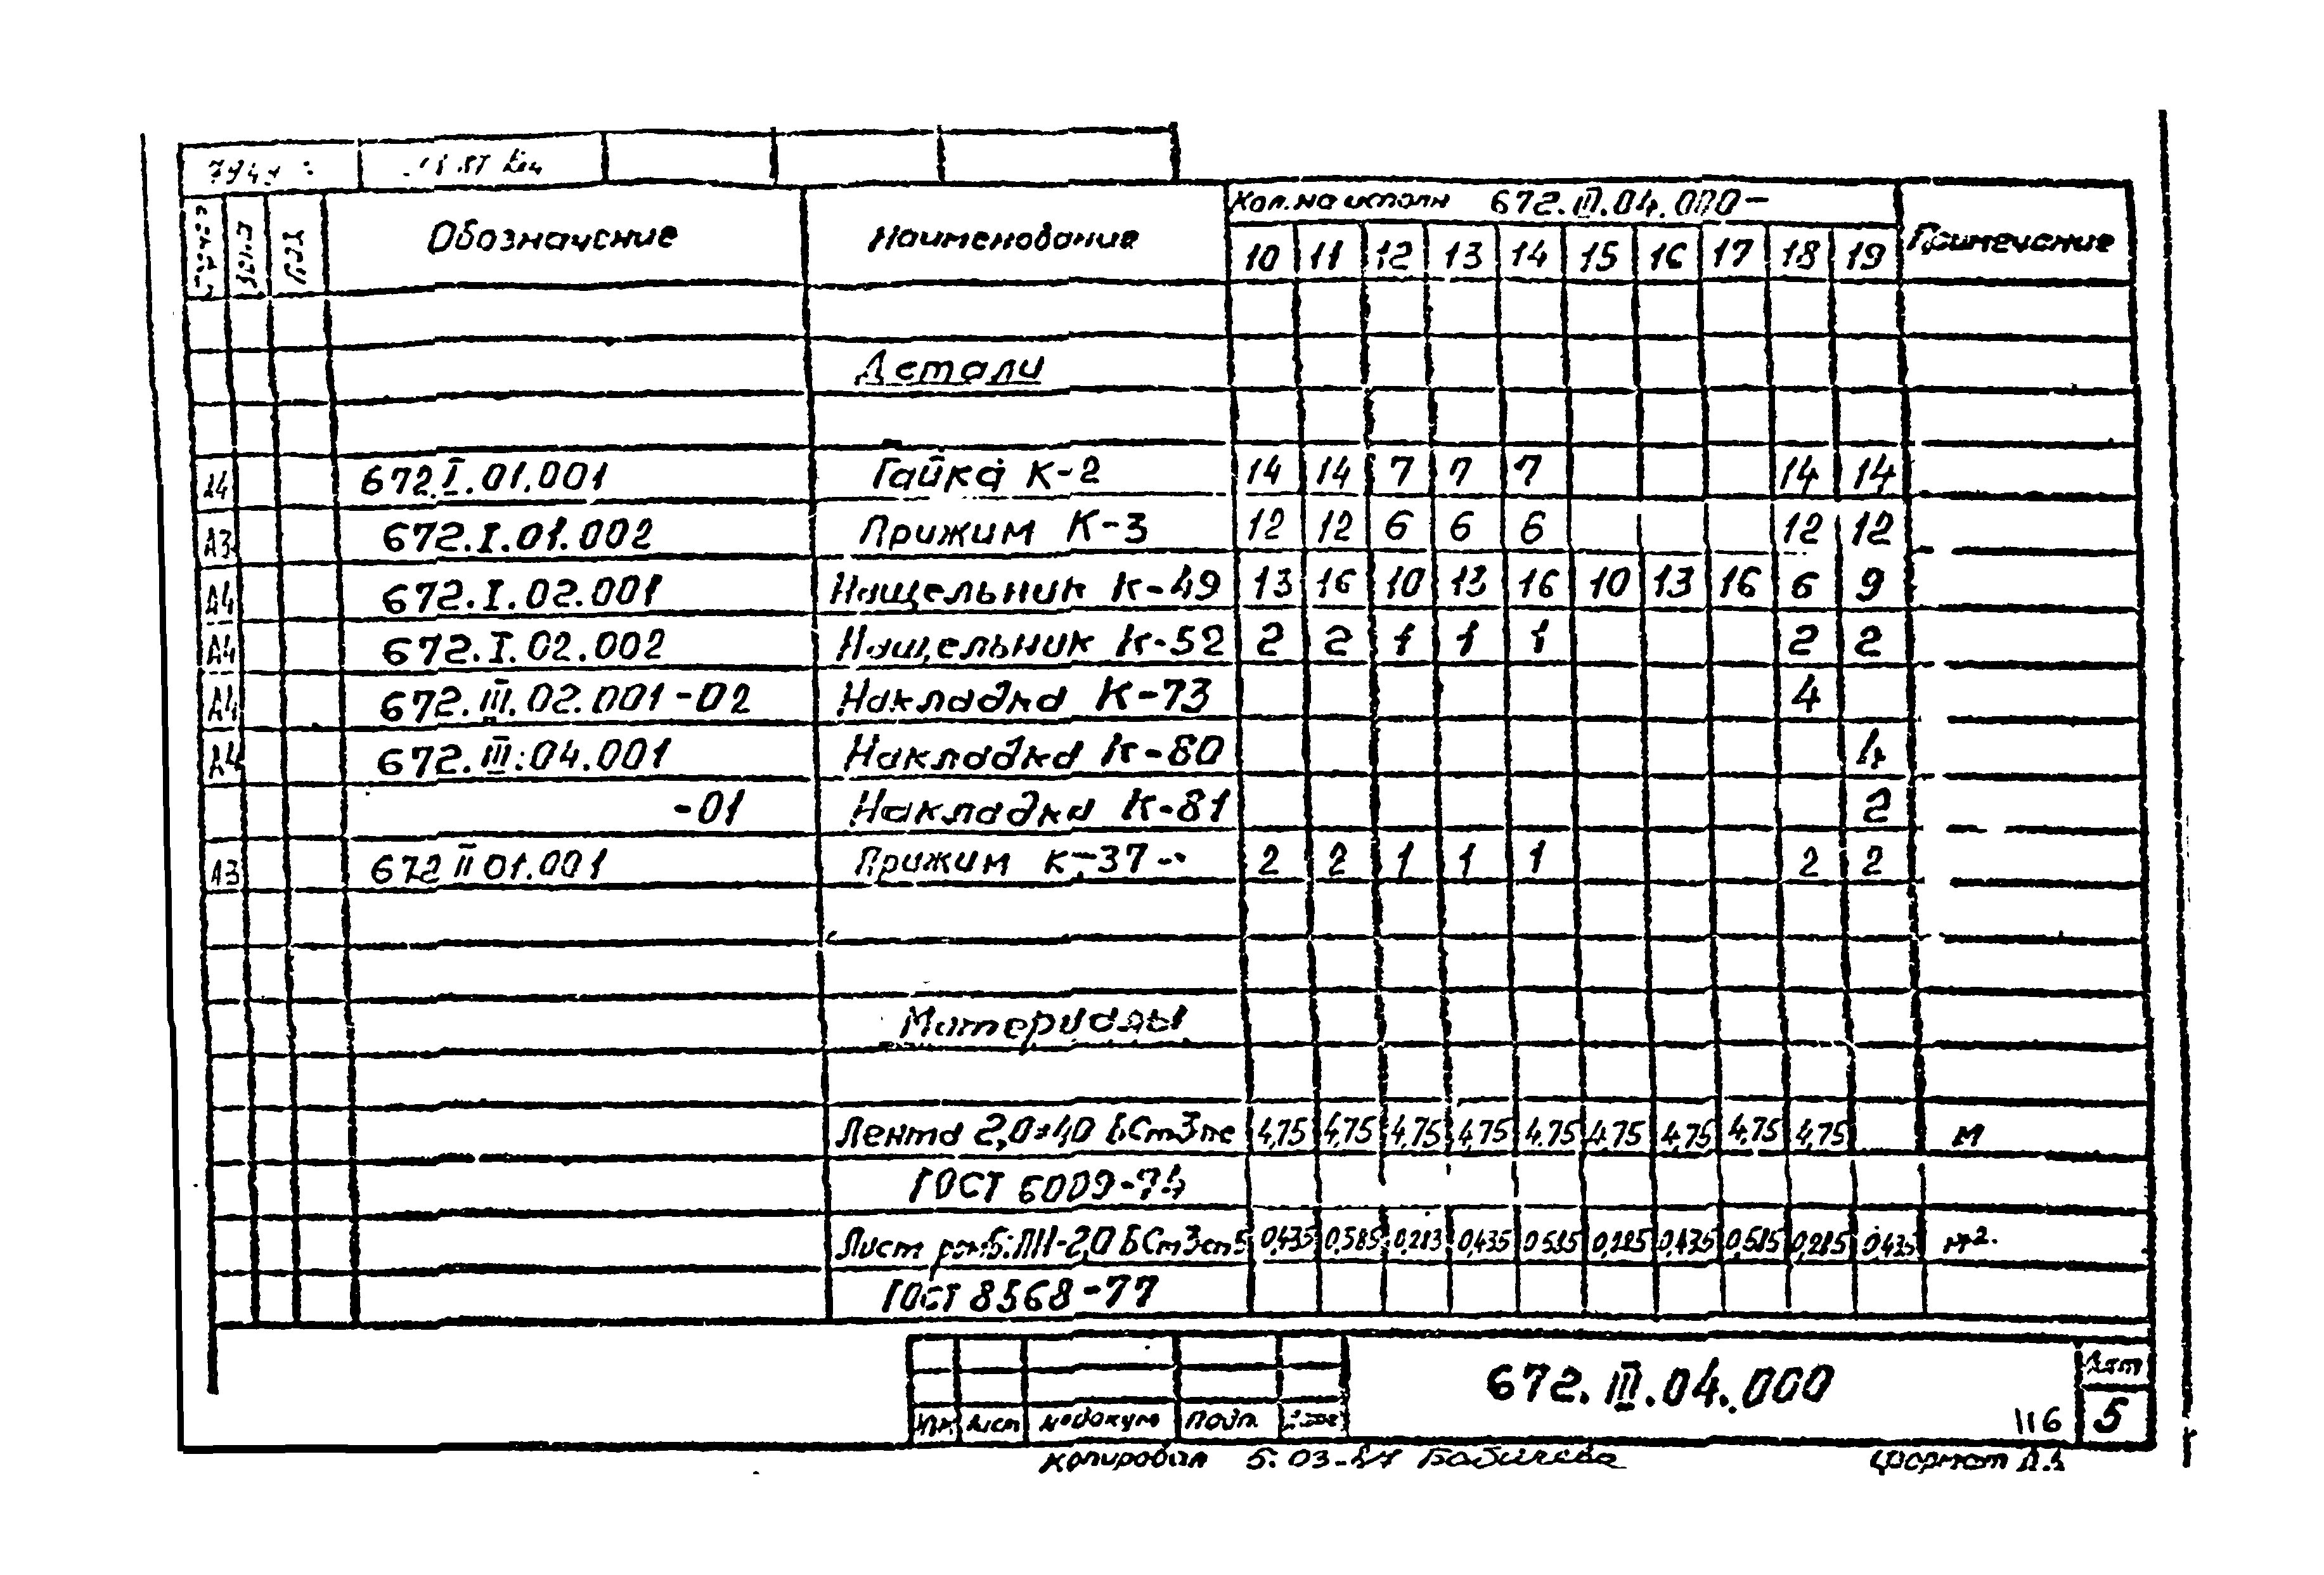 Кол. на исполн 672.III.04.000-
Обозначение Наименование 10 11 12 13 14 15 16 17 18 19 Примечание
Детали
672.I.01.001 Гайка К-2 14 14 7 7 7 14 14
А3 672.I.01.002 Прижим К-3 12 12 6 6 6 12 12
А4 672.I.02.001 Нащельник К-49 13 16 10 13 16 10 13 16 6 9
А4 672.I.02.002 Нащельник К-52 2 2 1 1 1 2 2
А4 672.III.02.001-02 Накладка К-73 4
А4 672.III.04.001 Накладка К-80 4
-01 Накладка К-81 2
А3 672 II 01.001 Прижим К-37 2 2 1 1 1 2 2
Материалы
Лента 2,0×40 БСт3пс 4,75 4,75 4,75 4,75 4,75 4,75 4,75 4,75 4,75 м
ГОСТ 6009-74
Лист ромб. ПН-2,0 БСт3сп5 0,435 0,585 0,283 0,435 0,585 0,285 0,435 0,585 0,285 0,435 м².
ГОСТ 8568-77
672.III.04.000 Лист
Изм Лист № докум Подп. Дата 116 5
Копировал 5.03-87 Бабичева Формат